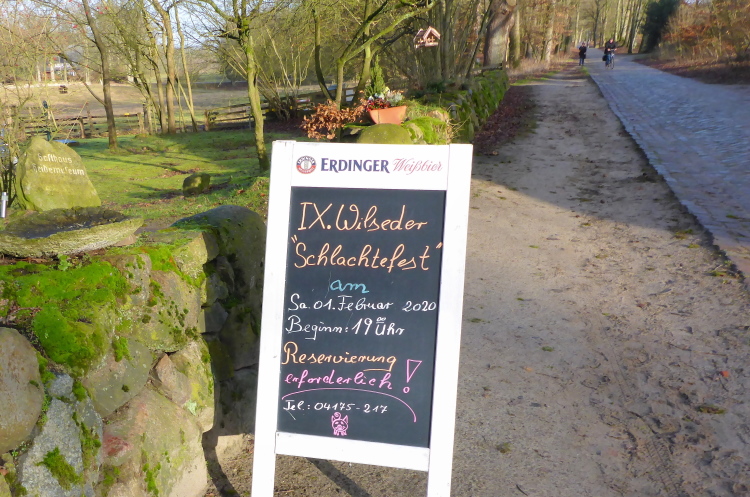 ERDINGER Weißbier
IX. Wilseder
"Schlachtefest"
am
Sa. 01. Februar 2020
Beginn: 19 00 Uhr
Reservierung
erforderlich!
Tel.: 04175-217
Gasthaus